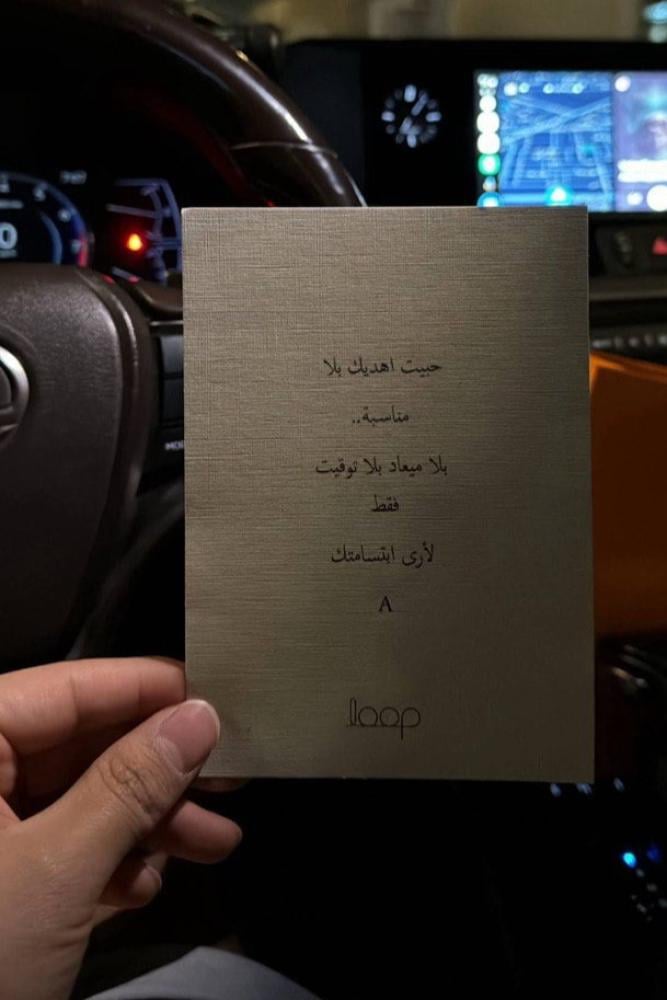 حبيت اهديك بلا
مناسبة..
بلا ميعاد بلا توقيت
فقط
لأرى ابتسامتك
A
loop